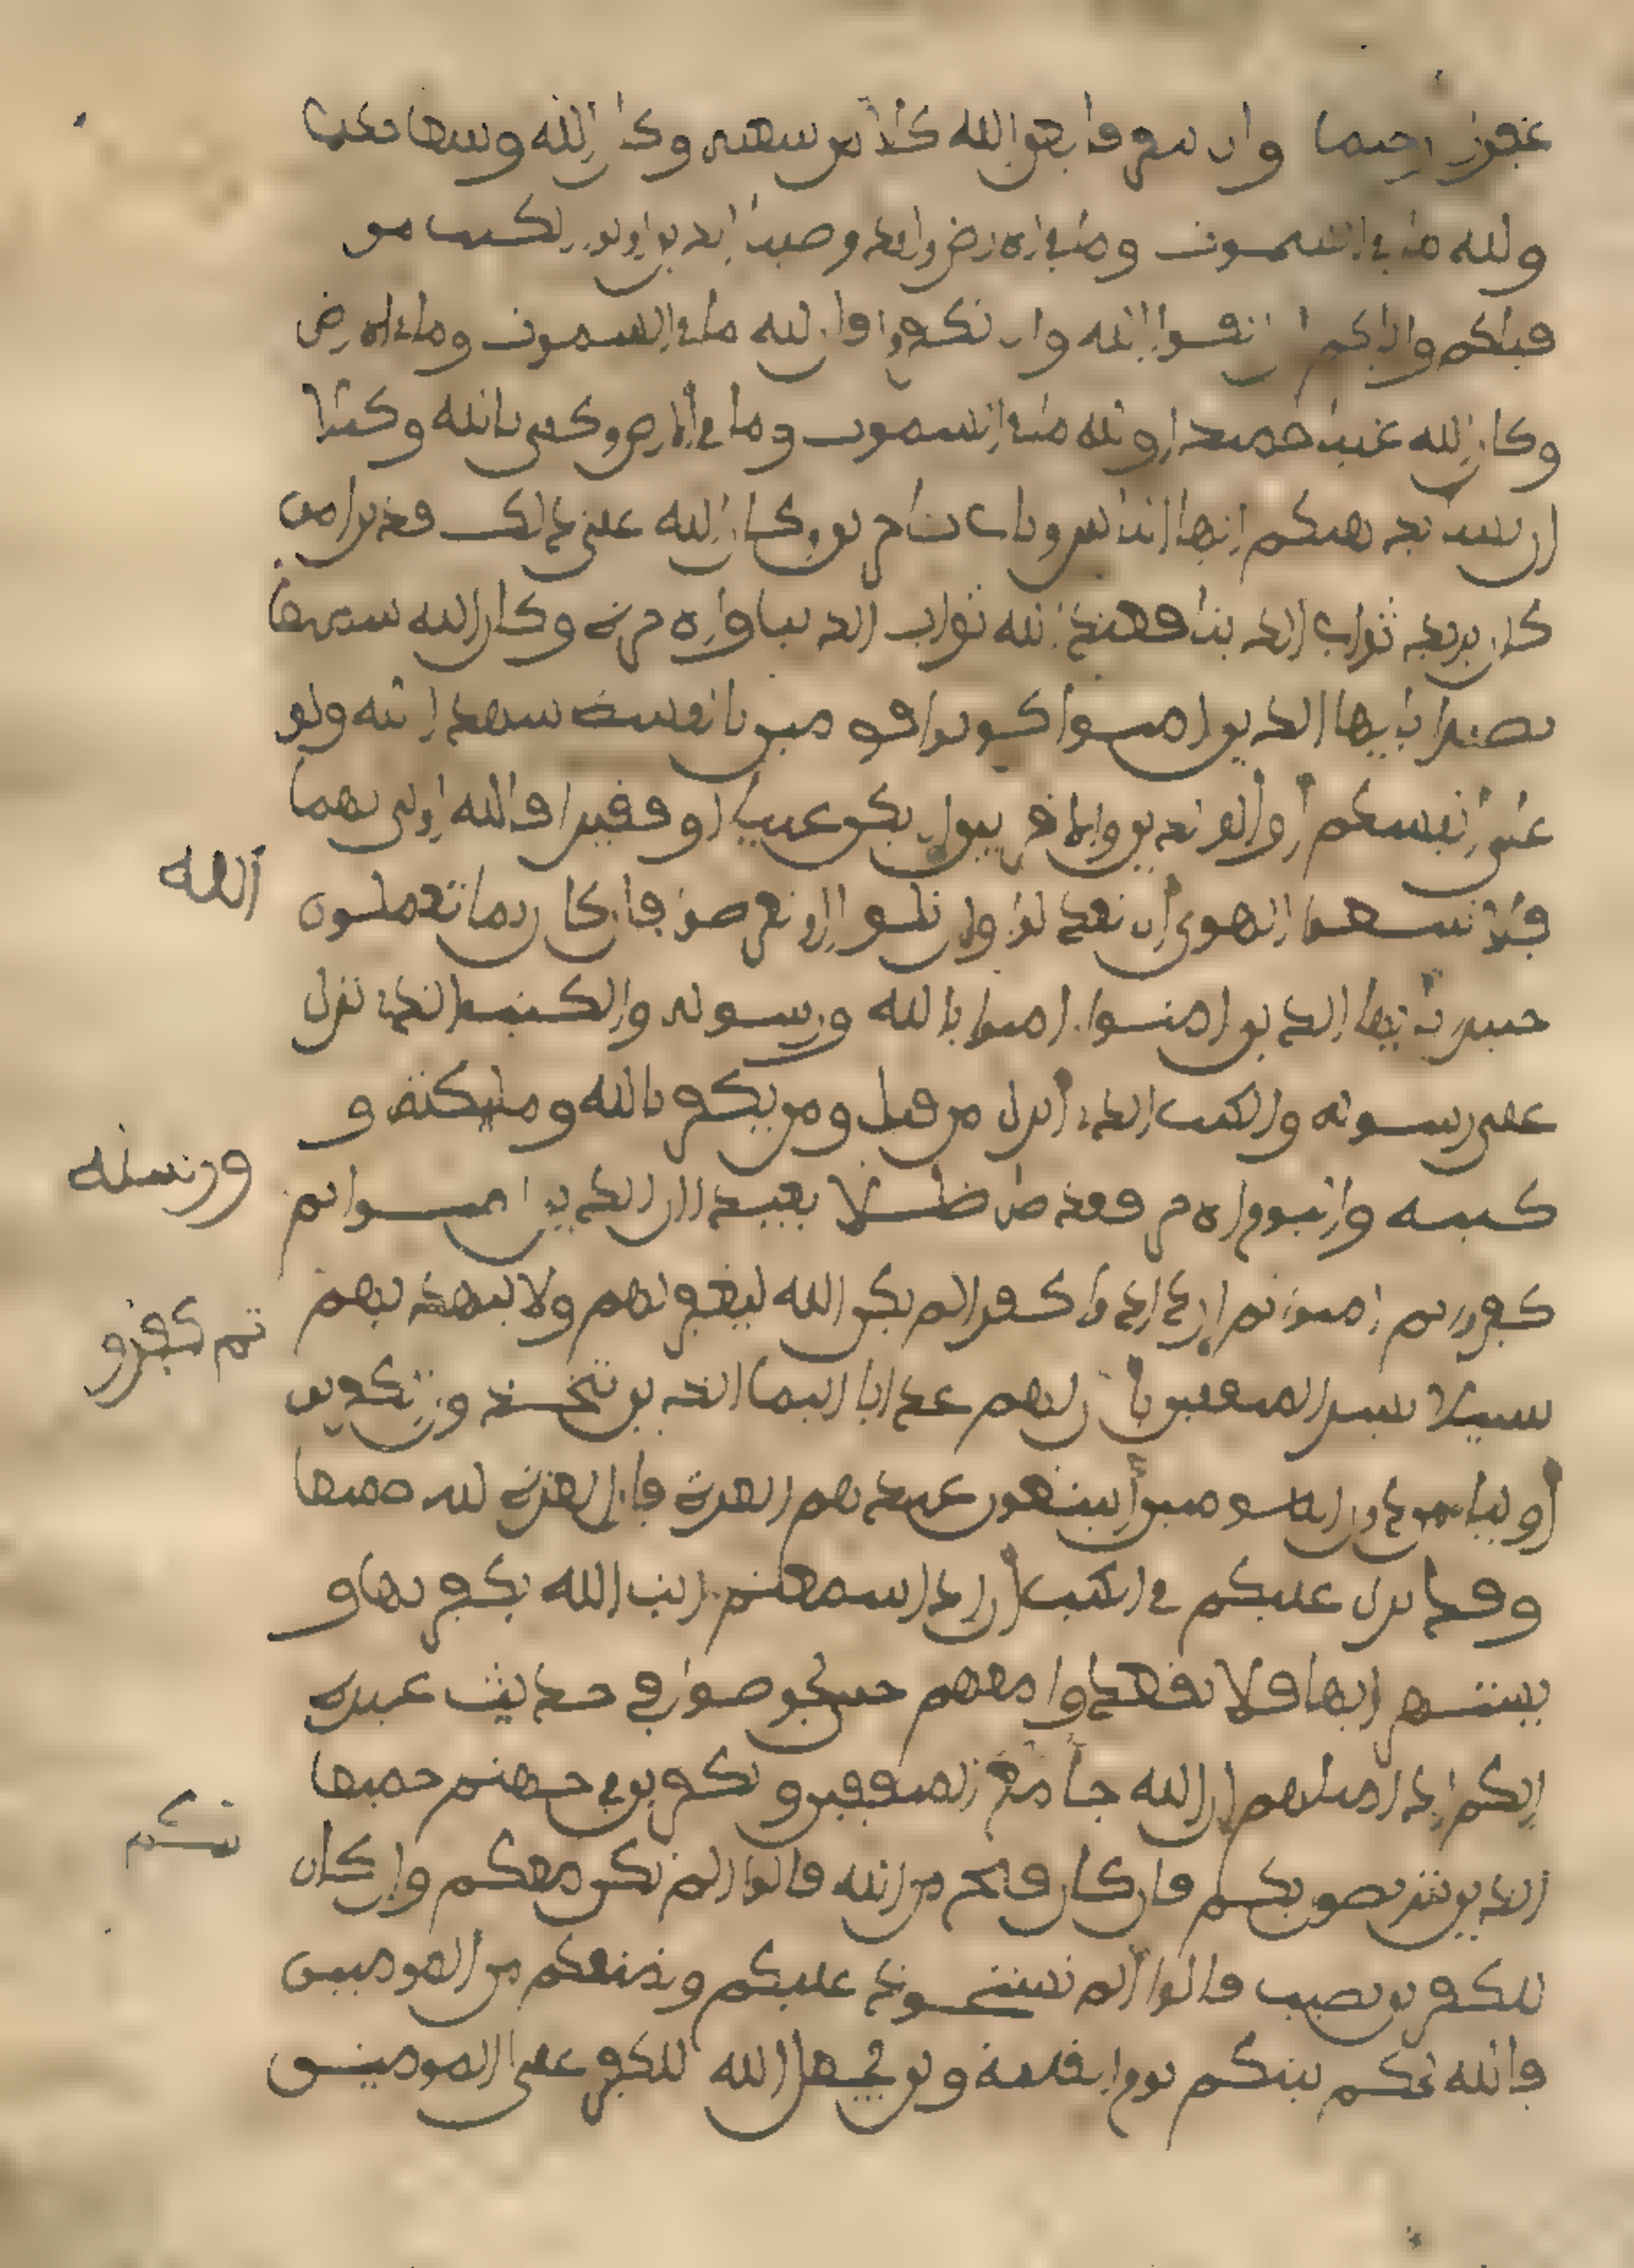 غفورا رحيما وان يتفرقا يغن الله كلا من سعته وكان الله وسعا حكيما
ولله ما في السموت وما في الارض ولقد وصينا الذين اوتوا الكتب من
قبلكم واياكم ان اتقوا الله وان تكفروا فان لله ما في السموت وما في الارض
وكان الله غنيا حميدا ولله ما في السموت وما في الارض وكفى بالله وكيلا
ان يشا يذهبكم ايها الناس ويات باخرين وكان الله على ذلك قديرا من
كان يريد ثواب الدنيا فعند الله ثواب الدنيا والاخرة وكان الله سميعا
بصيرا يايها الذين امنوا كونوا قومين بالقسط شهدا لله ولو
على انفسكم او الولدين والاقربين ان يكن غنيا او فقيرا فالله اولى بهما
فلا تتبعوا الهوى ان تعدلوا وان تلوا او تعرضوا فان كان بما تعملون
الله
خبيرا يايها الذين امنوا امنوا بالله ورسوله والكتب الذي نزل
على رسوله والكتب الذي انزل من قبل ومن يكفر بالله ومليكته و
ورسله
كتبه واليوم الاخر فقد ضل ضللا بعيدا ان الذين امنوا ثم
كفروا ثم امنوا ثم ازدادوا كفرا لم يكن الله ليغفر لهم ولا ليهديهم
ثم كفرو
سبيلا بشر المنفقين بان لهم عذابا اليما الذين يتخذون الكفرين
اوليا من دون المومنين ايبتغون عندهم العزة فان العزة لله جميعا
وقد نزل عليكم في الكتب ان اذا سمعتم ايت الله يكفر بها و
يستهزا بها فلا تقعدوا معهم حتى يخوضوا في حديث غيره
انكم اذا مثلهم ان الله جامع المنفقين والكفرين في جهنم جميعا
الذين يتربصون بكم فان كان فتح من الله قالوا الم نكن معكم وان كان
لكم
للكفرين نصيب قالوا الم نستحوذ عليكم ونمنعكم من المومنين
فالله يحكم بينكم يوم القيمة ولن يجعل الله للكفرين على المومنين